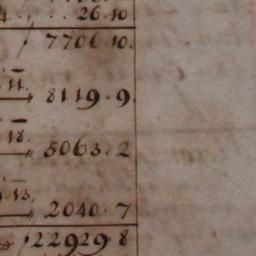 26.10
7706 10.
11. 8119.9
18. 5063.2
13. 2040.7
22929 8